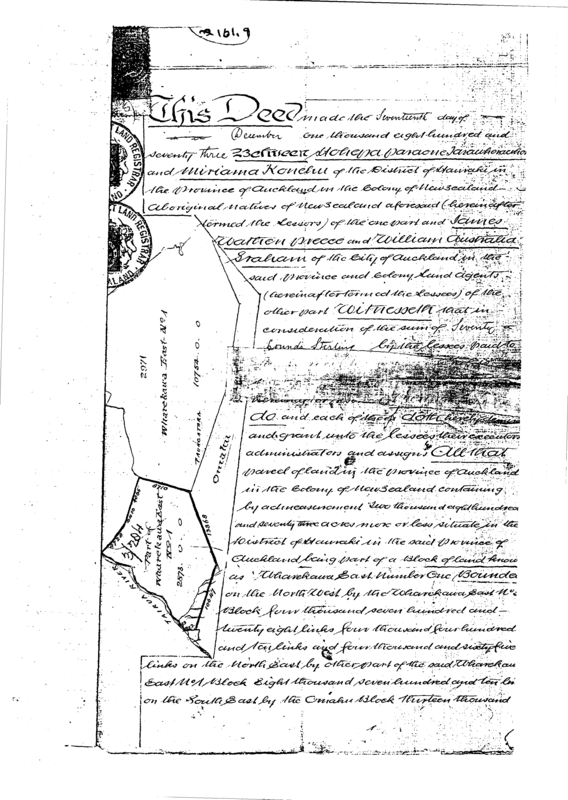 2161.9
This Deed made the Seventeenth day of
December one thousand eight hundred and
seventy three Between
and Miriama Konehu of the District of Hauraki in
the Province of Auckland in the Colony of New Zealand
Aboriginal natives of New Zealand aforesaid (hereinafter
termed the Lessors) of the one part and James
Walthon Preece and William Australia
Graham of the City of Auckland in the
said Province and Colony Land Agents
(hereinafter termed the Lessees) of the
other part Witnesseth that in
consideration of the sum of Seventy
Pounds Sterling by the lessees paid to
do and each of them doth hereby demise
and grant unto the lessees their executors
administrators and assigns All that
parcel of land in the Province of Auckland
in the Colony of New Zealand containing
by admeasurement Two thousand eight hundred
and seventy three acres more or less situate in the
District of Hauraki in the said Province of
Auckland being part of a Block of land know
as Wharekawa East Number One Bounde
on the North West by the Wharekawa East No
Block four thousand seven hundred and
twenty eight links four thousand four hundred
and ten links and four thousand and sixty five
links on the North East by other part of the said Wharekaw
East No 1 Block Eight thousand seven hundred and ten li
on the South East by the Omahu Block Thirteen thousand
LAND REGISTRAR
LAND REGISTRAR
2971
Wharekawa East No 1
10754. 0. 0
Omahu
8710
3/204
Part of
Wharekawa East
No 1
2873. 0. 0
TAIRUA RIVER